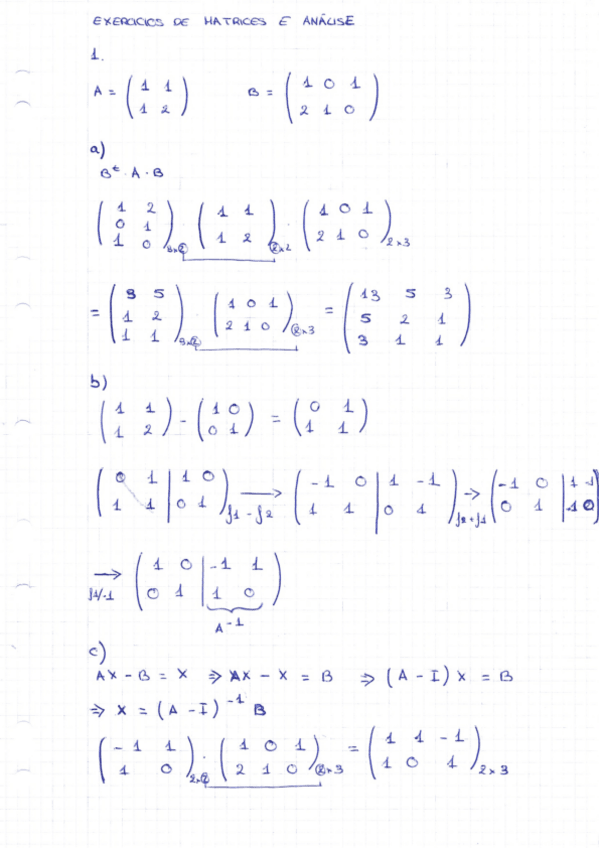 EXERCICIOS DE MATRICES E ANÁLISE
1.
A = ( 1 1 ; 1 2 ) B = ( 1 0 1 ; 2 1 0 )
a)
Bᵗ · A · B
( 1 2 ; 0 1 ; 1 0 )₃ₓ₂ · ( 1 1 ; 1 2 )₂ₓ₂ · ( 1 0 1 ; 2 1 0 )₂ₓ₃
= ( 3 5 ; 1 2 ; 1 1 )₃ₓ₂ · ( 1 0 1 ; 2 1 0 )₂ₓ₃ = ( 13 5 3 ; 5 2 1 ; 3 1 1 )
b)
( 1 1 ; 1 2 ) - ( 1 0 ; 0 1 ) = ( 0 1 ; 1 1 )
( 0 1 | 1 0 ; 1 1 | 0 1 ) f1 - f2 → ( -1 0 | 1 -1 ; 1 1 | 0 1 ) f2 + f1 → ( -1 0 | 1 -1 ; 0 1 | 1 0 )
→ f1/-1 ( 1 0 | -1 1 ; 0 1 | 1 0 )
A⁻¹
c)
AX - B = X ⇒ AX - X = B ⇒ (A - I) X = B
⇒ X = (A - I)⁻¹ B
( -1 1 ; 1 0 )₂ₓ₂ · ( 1 0 1 ; 2 1 0 )₂ₓ₃ = ( 1 1 -1 ; 1 0 1 )₂ₓ₃